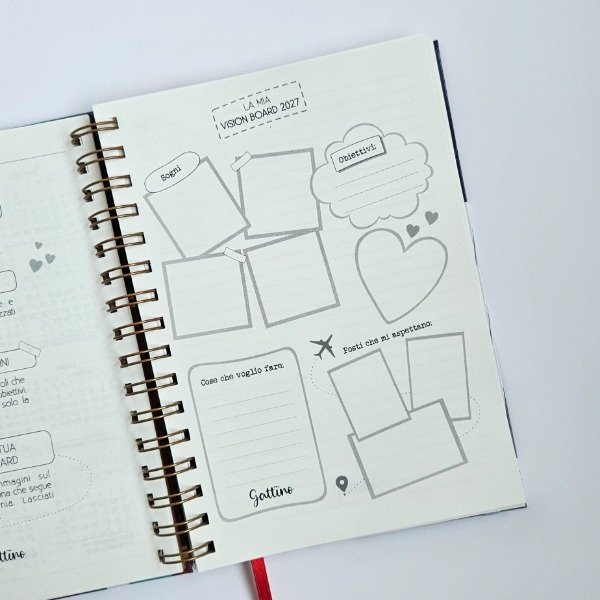 e e
zzati
NI
oli che
obiettivi,
solo la
TUA
ARD
mmagini sul
na che segue
nia. Lasciati
LA MIA
VISION BOARD 2027
Sogni
Obiettivi:
Posti che mi aspettano:
Cose che voglio fare:
Gattino